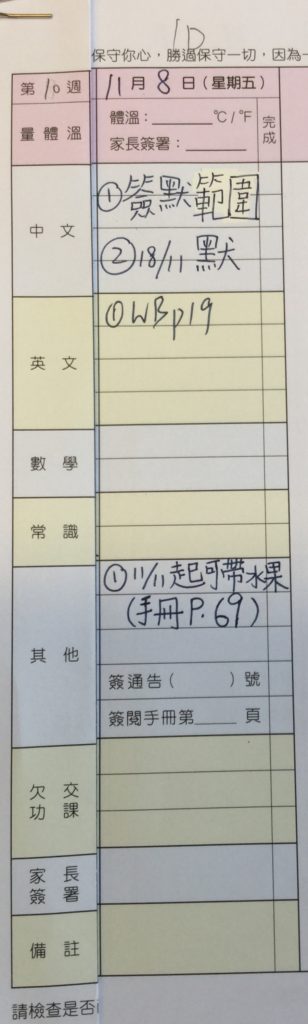 1D
保守你心，勝過保守一切，因為一
第10週 11月8日（星期五）
量體溫 體溫：______°C/°F 完成
家長簽署：______
中文 ①簽默範圍
②18/11 默
英文 ①WB p19
數學
常識
其他 ①11/11起可帶水果
(手冊P.69)
簽通告（ ）號
簽閱手冊第____頁
欠交功課
家長簽署
備註
請檢查是否